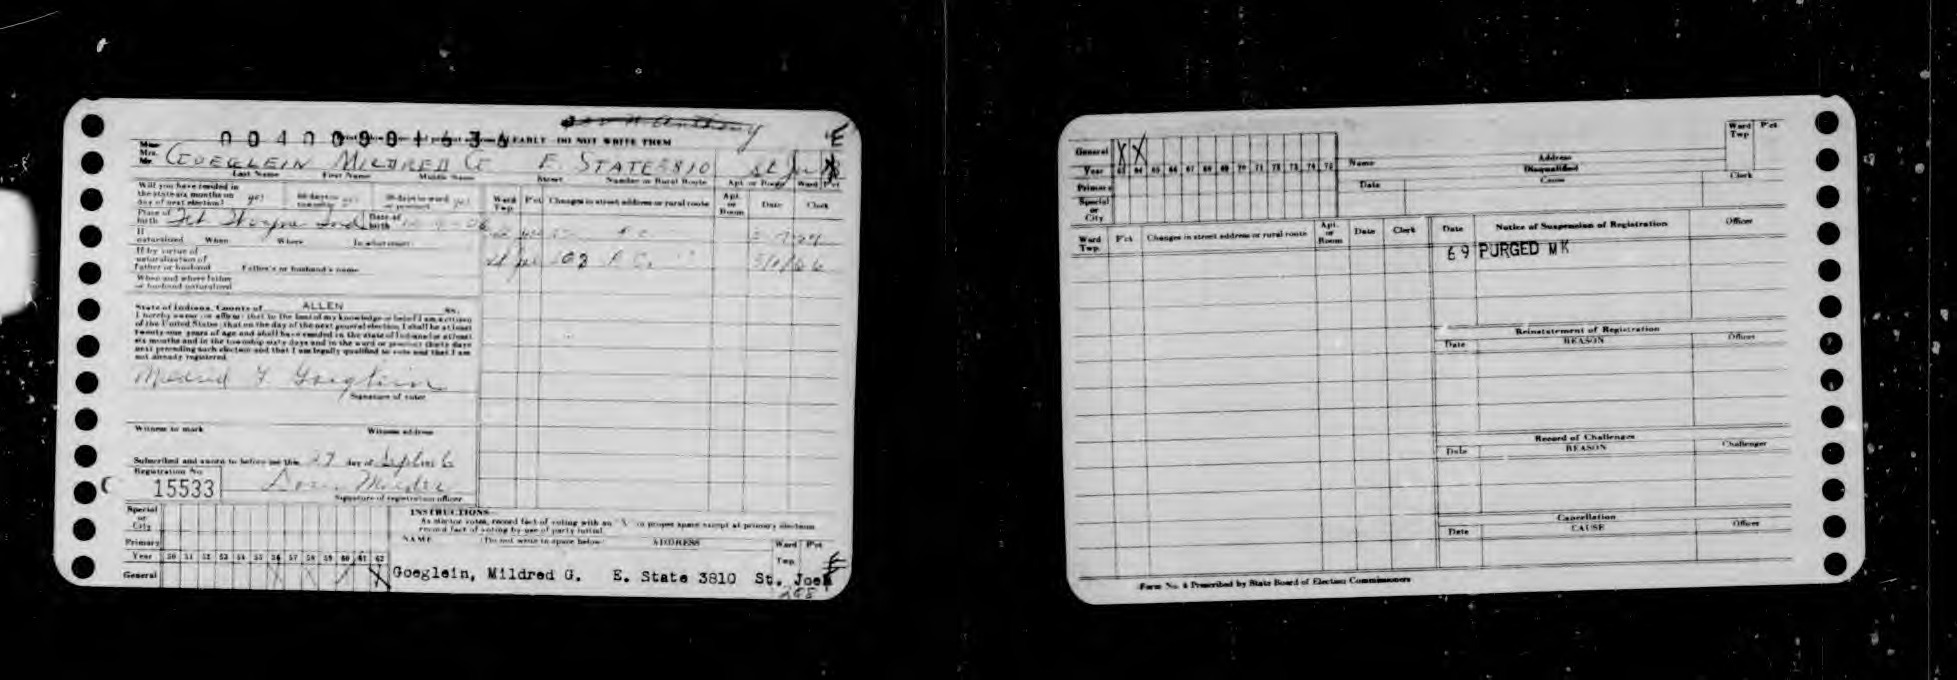 EARLY - DO NOT WRITE THEM
Miss
Mrs.
Mr. GOEGLEIN MILDRED G E. STATE 3810 St Jo
Last Name First Name Middle Name Street Number or Rural Route Apt. or Room Ward P'ct
Will you have resided in the state six months on day of next election? yes 60 days in township yes 30 days in ward or precinct yes
Ward Twp. P'ct Changes in street address or rural route Apt. or Room Date Clerk
Place of birth Ft Wayne Ind Date of birth
If naturalized When Where In what court
If by virtue of naturalization of Father or husband Father's or husband's name
When and where father or husband naturalized
State of Indiana, County of ALLEN ss.
I hereby swear (or affirm) that to the best of my knowledge or belief I am a citizen
of the United States; that on the day of the next general election, I shall be at least
twenty-one years of age and shall have resided in the state of Indiana for at least
six months and in the township sixty days and in the ward or precinct thirty days
next preceding such election and that I am legally qualified to vote and that I am
not already registered.
Mildred G Goeglein
Signature of voter
Witness to mark Witness address
Subscribed and sworn to before me this 27 day of
Registration No.
15533
Signature of registration officer
Special or City
Primary
Year 50 51 52 53 54 55 56 57 58 59 60 61 62
General
INSTRUCTIONS
As elector votes, record fact of voting with an "X" in proper space except at primary elections
record fact of voting by use of party initial
NAME (Do not write in space below) ADDRESS Ward Twp. P'ct
Goeglein, Mildred G. E. State 3810 St. Joe
General X X
Year 63 64 65 66 67 68 69 70 71 72 73 74 75
Primary
Special or City
Name Address Ward Twp P'ct
Disqualified
Date Cause Clerk
Ward Twp. P'ct Changes in street address or rural route Apt. or Room Date Clerk
Date Notice of Suspension of Registration Officer
69 PURGED MK
Reinstatement of Registration
Date REASON Officer
Record of Challenges
Date REASON Challenger
Cancellation
Date CAUSE Officer
Form No. 4 Prescribed by State Board of Election Commissioners